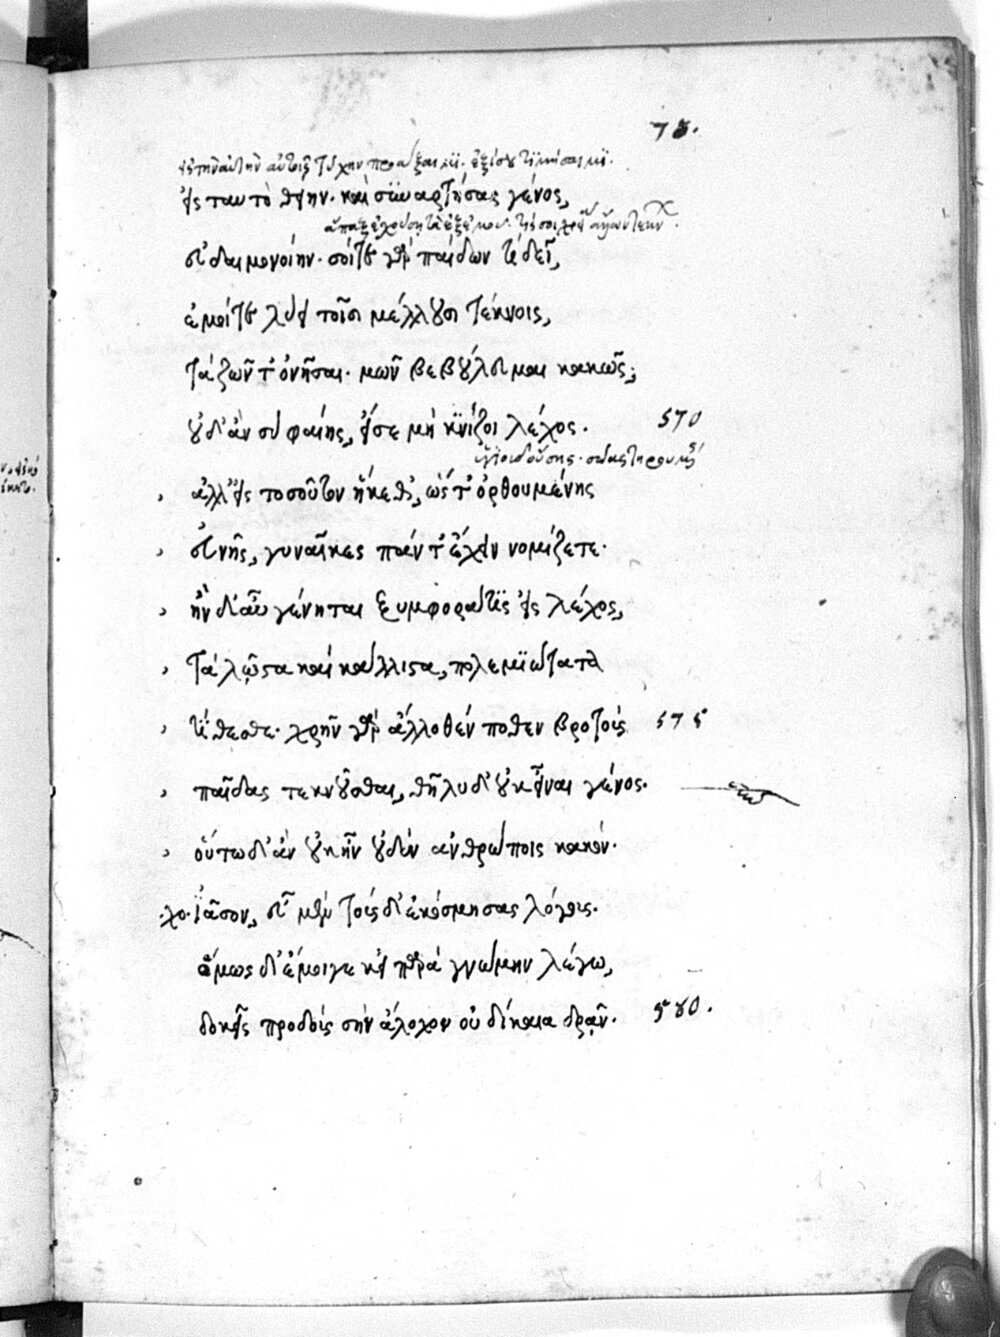 75.
εἰς τὴν αὐτὴν τύχην
εἰς ταυτὸ θείην· καὶ συναρτήσας γένος,
εὐδαιμονοίην· σοί τε γὰρ παίδων τί δεῖ,
ἐμοί τε λύει τοῖσι μέλλουσι τέκνοις,
τὰ ζῶντ' ὀνῆσαι· μῶν βεβούλευμαι κακῶς;
οὐδ' ἂν σὺ φαίης, εἴ σε μὴ κνίζοι λέχος. 570
ἀλλ' εἰς τοσοῦτον ἥκεθ', ὥς τ' ὀρθουμένης
εὐνῆς, γυναῖκες πάντ' ἔχειν νομίζετε·
ἢν δ' αὖ γένηται ξυμφορά τις εἰς λέχος,
τὰ λῷστα καὶ κάλλιστα, πολεμιώτατα
τίθεσθε· χρῆν γὰρ ἄλλοθέν ποθεν βροτοὺς 575
παῖδας τεκνοῦσθαι, θῆλυ δ' οὐκ εἶναι γένος.
οὕτω δ' ἂν οὐκ ἦν οὐδὲν ἀνθρώποις κακόν.
χο. Ἰᾶσον, εὖ μὲν τούσδ' ἐκόσμησας λόγους.
ὅμως δ' ἔμοιγε κεἰ παρὰ γνώμην λέγω,
δοκεῖς προδοὺς σὴν ἄλοχον οὐ δίκαια δρᾶν. 580.